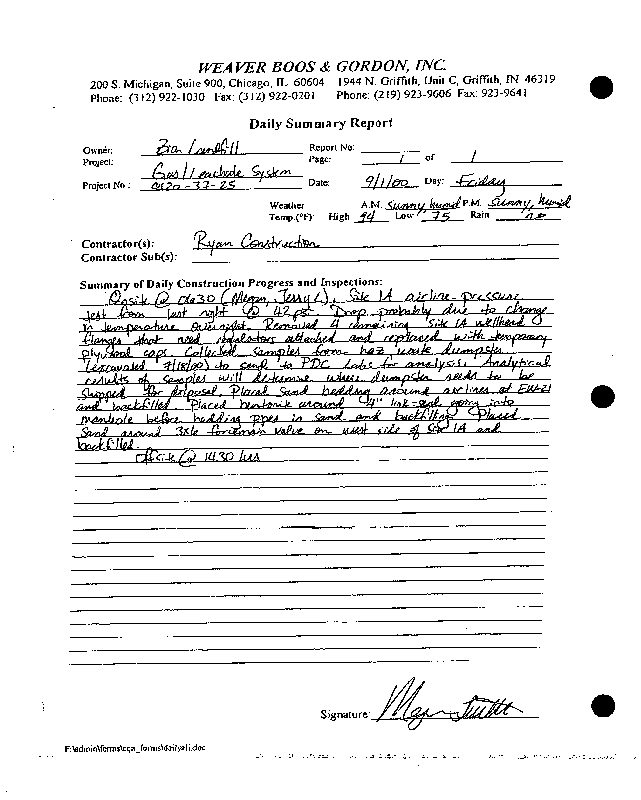 WEAVER BOOS & GORDON, INC.
200 S. Michigan, Suite 900, Chicago, IL 60604 1944 N. Griffith, Unit C, Griffith, IN 46319
Phone: (312) 922-1030 Fax: (312) 922-0201 Phone: (219) 923-9606 Fax: 923-9641
Daily Summary Report
Owner: Landfill Report No:
Project: Gas/Leachate System Page: 1 of 1
Project No.: Date: 9/1/00 Day: Friday
Weather A.M. Sunny, humid P.M. Sunny, humid
Temp.(°F): High 94 Low 75 Rain
Contractor(s): Ryan Construction
Contractor Sub(s):
Summary of Daily Construction Progress and Inspections:
Onsite @ 0630 (Megan, Jerry L). Site 1A airline pressure
test from last night @ 42 psi. Drop probably due to change
in temperature overnight. Removed 4 remaining Site 1A wellhead
flanges that need regulators attached and replaced with temporary
plywood caps. Collected samples from haz waste dumpster
(excavated 7/18/00) to send to PDC Labs for analysis. Analytical
results of samples will determine where dumpster needs to be
shipped for disposal. Placed sand bedding around airlines at EW-21
and backfilled. Placed bentonite around 4" link-seal going into
manhole before bedding pipes in sand and backfilling. Placed
sand around 3x6 valve on west side of Site 1A and
backfilled.
Offsite @ 1430 hrs
Signature:
F:\admin\forms\cqa_forms\dailyali.doc